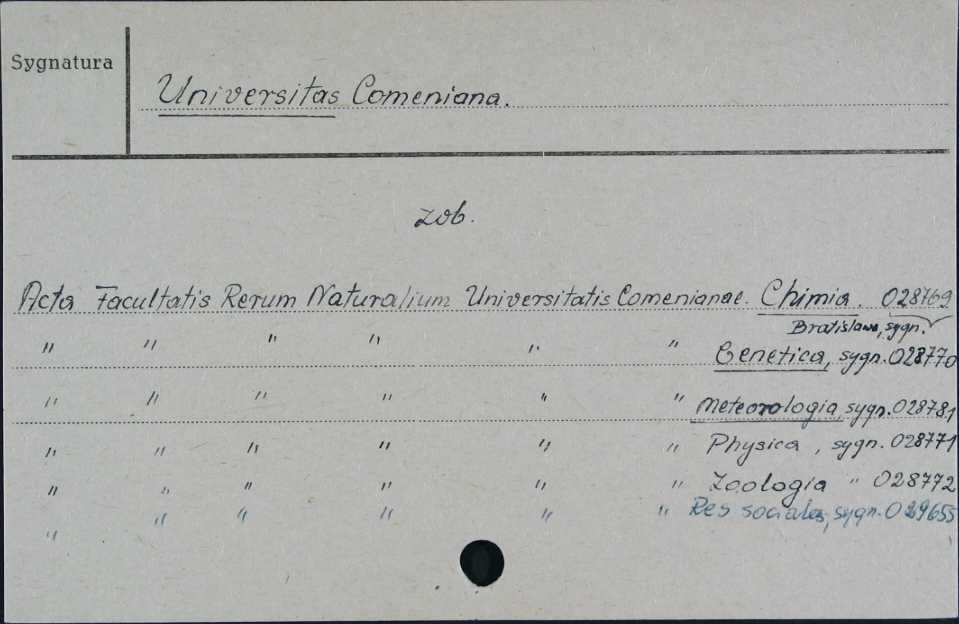 Sygnatura
Universitas Comeniana.
zob.
Acta Facultatis Rerum Naturalium Universitatis Comenianae. Chimia. 028769
Bratislava, sygn.
" " " " " " Genetica, sygn. 028770
" " " " " " Meteorologia, sygn. 028781
" " " " " " Physica, sygn. 028771
" " " " " " Zoologia " 028772
" " " " " " Res sociales, sygn. 029655